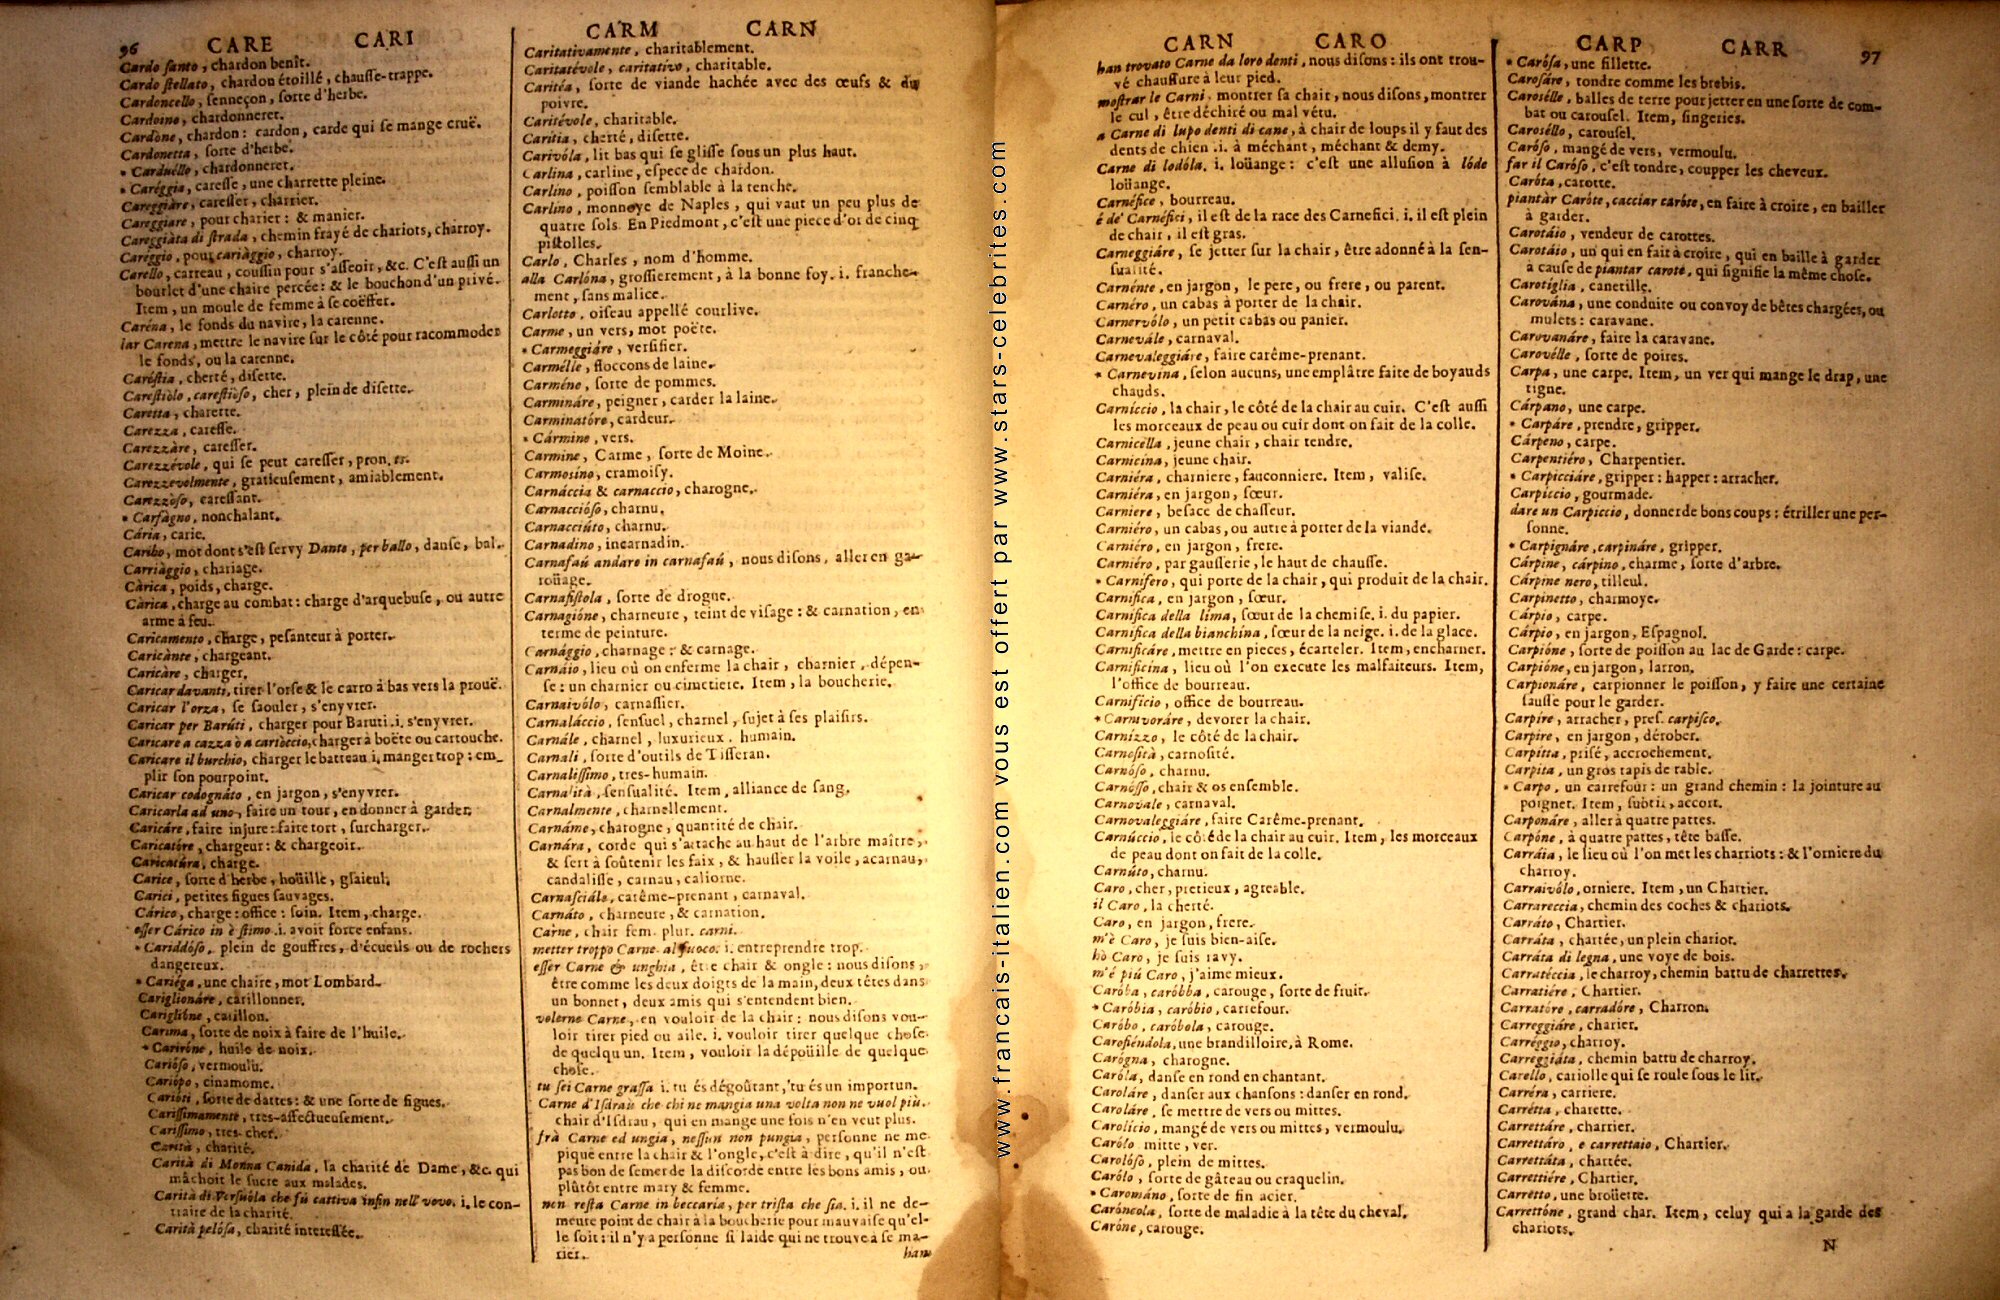 96 CARE CARI
Cardo santo, chardon benît.
Cardo stellato, chardon étoillé, chausse-trappe.
Cardoncello, senneçon, sorte d'herbe.
Cardoino, chardonneret.
Cardòne, chardon: cardon, carde qui se mange cruë.
Cardonetta, sorte d'herbe.
* Carduéllo, chardonneret.
* Caréggia, caresse, une charrette pleine.
Careggiàre, caresser, charrier.
Careggiare, pour charier: & manier.
Careggiàta di strada, chemin frayé de chariots, charroy.
Caréggio, pour cariàggio, charroy.
Carello, carreau, coussin pour s'asseoir, &c. C'est aussi un
bourlet d'une chaire percée: & le bouchon d'un privé.
Item, un moule de femme à se coëffer.
Caréna, le fonds du navire, la carenne.
far Carena, mettre le navire sur le côté pour racommoder
le fonds, ou la carenne.
Caréstia, cherté, disette.
Carestiòlo, carestióso, cher, plein de disette.
Caretta, charette.
Carezza, caresse.
Carezzàre, caresser.
Carezzévole, qui se peut caresser, pron. er.
Carezzevolmente, gratieusement, amiablement.
Carezzòso, caressant.
* Carfàgno, nonchalant.
Cária, carie.
Caribo, mot dont s'est servy Dante, per ballo, danse, bal.
Carriàggio, chariage.
Càrica, poids, charge.
Càrica, charge au combat: charge d'arquebuse, ou autre
arme à feu.
Caricamento, charge, pesanteur à porter.
Caricànte, chargeant.
Caricàre, charger.
Caricar davanti, tirer l'orse & le carro à bas vers la prouë.
Caricar l'orza, se saouler, s'enyvrer.
Caricar per Barúti, charger pour Baruti. i. s'enyvrer.
Caricare a cazza ò a cartòccio, charger à boëte ou cartouche.
Caricare il burchio, charger le batteau i. manger trop: em-
plir son pourpoint.
Caricar codognáto, en jargon, s'enyvrer.
Caricarla ad uno, faire un tour, en donner à garder.
Caricáre, faire injure: faire tort, surcharger.
Caricatóre, chargeur: & chargeoir.
Caricatúra, charge.
Carice, sorte d'herbe, hoüille, glaieul.
Carici, petites figues sauvages.
Cárico, charge: office: soin. Item, charge.
esser Cárico in è stimo. i. avoir force enfans.
* Cariddóso, plein de gouffres, d'écueils ou de rochers
dangereux.
* Cariéga, une chaire, mot Lombard.
Cariglionáre, carillonner.
Cariglióne, carillon.
Carima, sorte de noix à faire de l'huile.
* Carirône, huile de noix.
Carióso, vermoulu.
Cariópo, cinamome.
Carióti, sorte de dattes: & une sorte de figues.
Carissimamente, tres-affectueusement.
Carissimo, tres-cher.
Carità, charité.
Carità di Monna Canida, la charité de Dame, &c. qui
mâchoit le sucre aux malades.
Carità di Versuola che fú cattiva infin nell'vovo. i. le con-
traire de la charité.
Carità pelósa, charité interessée.
CARM CARN
Caritativamente, charitablement.
Caritatévole, caritativo, charitable.
Caritéa, sorte de viande hachée avec des œufs & du
poivre.
Caritévole, charitable.
Caritia, cherté, disette.
Carivóla, lit bas qui se glisse sous un plus haut.
Carlina, carline, espece de chardon.
Carlino, poisson semblable à la tenche.
Carlino, monnoye de Naples, qui vaut un peu plus de
quatre sols. En Piedmont, c'est une piece d'or de cinq
pistolles.
Carlo, Charles, nom d'homme.
alla Carlóna, grossierement, à la bonne foy. i. franche-
ment, sans malice.
Carlotto, oiseau appellé courlive.
Carme, un vers, mot poëte.
* Carmeggiáre, versifier.
Carmélle, floccons de laine.
Carméno, sorte de pommes.
Carmináre, peigner, carder la laine.
Carminatóre, cardeur.
* Cármine, vers.
Carmine, Carme, sorte de Moine.
Carmosino, cramoisy.
Carnáccia & carnaccio, charogne.
Carnaccióso, charnu.
Carnacciúto, charnu.
Carnadino, incarnadin.
Carnafaú andare in carnafaú, nous disons, aller en ga-
roüage.
Carnafistola, sorte de drogue.
Carnagióne, charneure, teint de visage: & carnation, en
terme de peinture.
Carnággio, charnage: & carnage.
Carnáio, lieu où on enferme la chair, charnier, dépen-
se: un charnier ou cimetiere. Item, la boucherie.
Carnaivólo, carnassier.
Carnaláccio, sensuel, charnel, sujet à ses plaisirs.
Carnále, charnel, luxurieux, humain.
Carnali, sorte d'outils de Tisseran.
Carnalissimo, tres-humain.
Carnalità, sensualité. Item, alliance de sang.
Carnalmente, charnellement.
Carnáme, charogne, quantité de chair.
Carnára, corde qui s'attache au haut de l'arbre maître,
& sert à soûtenir les faix, & hausser la voile, acarnau,
candalisse, carnau, caliorne.
Carnasciále, carême-prenant, carnaval.
Carnáto, charneure, & carnation.
Carne, chair fem. plur. carni.
metter troppo Carne al fuoco. i. entreprendre trop.
esser Carne & unghia, être chair & ongle: nous disons,
être comme les deux doigts de la main, deux têtes dans
un bonnet, deux amis qui s'entendent bien.
volerne Carne, en vouloir de la chair: nous disons vou-
loir tirer pied ou aile. i. vouloir tirer quelque chose
de quelqu'un. Item, vouloir la dépoüille de quelque
chose.
tu sei Carne grassa i. tu és dégoûtant, tu és un importun.
Carne d'Isdraio che chi ne mangia una volta non ne vuol più.
chair d'Isdrau, qui en mange une fois n'en veut plus.
frà Carne ed ungia, nessun non pungia, personne ne me
pique entre la chair & l'ongle, c'est à dire, qu'il n'est
pas bon de semer de la discorde entre les bons amis, ou
plûtôt entre mary & femme.
non resta Carne in beccaria, per trista che sia. i. il ne de-
meure point de chair à la boucherie pour mauvaise qu'el-
le soit: il n'y a personne si laide qui ne trouve à se ma-
rier.
han
www.francais-italien.com vous est offert par www.stars-celebrites.com
CARN CARO
han trovato Carne da loro denti, nous disons: ils ont trou-
vé chaussure à leur pied.
mostrar le Carni, montrer sa chair, nous disons, montrer
le cul, être déchiré ou mal vétu.
a Carne di lupo denti di cane, à chair de loups il y faut des
dents de chien. i. à méchant, méchant & demy.
Carne di lodóla. i. loüange: c'est une allusion à lóde
loüange.
Carnéfice, bourreau.
é de' Carnéfici, il est de la race des Carnefici. i. il est plein
de chair, il est gras.
Carneggiáre, se jetter sur la chair, être adonné à la sen-
sualité.
Carnénte, en jargon, le pere, ou frere, ou parent.
Carnéro, un cabas à porter de la chair.
Carnervólo, un petit cabas ou panier.
Carnevále, carnaval.
Carnevaleggiáre, faire carême-prenant.
* Carnevina, selon aucuns, une emplâtre faite de boyauds
chauds.
Carníccio, la chair, le côté de la chair au cuir. C'est aussi
les morceaux de peau ou cuir dont on fait de la colle.
Carnicélla, jeune chair, chair tendre.
Carnicina, jeune chair.
Carniéra, charniere, fauconniere. Item, valise.
Carniéra, en jargon, sœur.
Carniere, besace de chasseur.
Carniéro, un cabas, ou autre à porter de la viande.
Carniéro, en jargon, frere.
Carniéro, par gausserie, le haut de chausse.
* Carnifero, qui porte de la chair, qui produit de la chair.
Carnifica, en jargon, sœur.
Carnifica della lima, sœur de la chemise. i. du papier.
Carnifica della bianchina, sœur de la neige. i. de la glace.
Carnificáre, mettre en pieces, écarteler. Item, encharner.
Carnificina, lieu où l'on execute les malfaiteurs. Item,
l'office de bourreau.
Carnificio, office de bourreau.
* Carnivoráre, devorer la chair.
Carnizzo, le côté de la chair.
Carnosità, carnosité.
Carnóso, charnu.
Carnósso, chair & os ensemble.
Carnovale, carnaval.
Carnovaleggiáre, faire Carême-prenant.
Carnúccio, le côté de la chair au cuir. Item, les morceaux
de peau dont on fait de la colle.
Carnúto, charnu.
Caro, cher, pretieux, agreable.
il Caro, la cherté.
Caro, en jargon, frere.
m'è Caro, je suis bien-aise.
hò Caro, je suis ravy.
m'é piú Caro, j'aime mieux.
Caróba, caróbba, carouge, sorte de fruit.
* Caróbia, caróbio, carrefour.
Caróbo, caróbola, carouge.
Carosiéndola, une brandilloire, à Rome.
Carógna, charogne.
Caróla, danse en rond en chantant.
Caroláre, danser aux chansons: danser en rond.
Caroláre, se mettre de vers ou mittes.
Carolício, mangé de vers ou mittes, vermoulu.
Carólo mitte, ver.
Carolóso, plein de mittes.
Carólo, sorte de gâteau ou craquelin.
* Carománo, sorte de fin acier.
Caróncola, sorte de maladie à la tête du cheval.
Caróne, carouge.
CARP CARR 97
* Carósa, une fillette.
Carosáre, tondre comme les brebis.
Carosélle, balles de terre pour jetter en une sorte de com-
bat ou carousel. Item, singeries.
Caroséllo, carousel.
Caróso, mangé de vers, vermoulu.
far il Caróso, c'est tondre, coupper les cheveux.
Caróta, carotte.
piantàr Caróte, cacciar caróte, en faire à croire, en bailler
à garder.
Carotáio, vendeur de carottes.
Carotáio, un qui en fait à croire, qui en baille à garder
à cause de piantar carote, qui signifie la même chose.
Carotiglia, canetille.
Carována, une conduite ou convoy de bêtes chargées, ou
mulets: caravane.
Carovanáre, faire la caravane.
Carovélle, sorte de poires.
Carpa, une carpe. Item, un ver qui mange le drap, une
tigne.
Cárpano, une carpe.
* Carpáre, prendre, gripper.
Cárpeno, carpe.
Carpentiéro, Charpentier.
* Carpicciáre, gripper: happer: arracher.
Carpiccio, gourmade.
dare un Carpiccio, donner de bons coups: étriller une per-
sonne.
* Carpignáre, carpináre, gripper.
Cárpine, cárpino, charme, sorte d'arbre.
Cárpine nero, tilleul.
Carpinetto, charmoye.
Cárpio, carpe.
Cárpio, en jargon, Espagnol.
Carpióne, sorte de poisson au lac de Garde: carpe.
Carpióne, en jargon, larron.
Carpionáre, carpionner le poisson, y faire une certaine
sausse pour le garder.
Carpire, arracher, pres. carpisco.
Carpire, en jargon, dérober.
Carpitta, prisé, accrochement.
Carpita, un gros tapis de table.
* Carpo, un carrefour: un grand chemin: la jointure au
poignet. Item, subtil, accort.
Carponáre, aller à quatre pattes.
Carpóne, à quatre pattes, tête basse.
Carráia, le lieu où l'on met les charriots: & l'orniere du
charroy.
Carraivólo, orniere. Item, un Chartier.
Carrareccia, chemin des coches & chariots.
Carráto, Chartier.
Carráta, chartée, un plein chariot.
Carráta di legna, une voye de bois.
Carratéccia, le charroy, chemin battu de charrettes.
Carratiére, Chartier.
Carratóre, carradóre, Charron.
Carreggiáre, charier.
Carréggio, charroy.
Carreggiáta, chemin battu de charroy.
Carello, cariolle qui se roule sous le lit.
Carréra, carriere.
Carrétta, charette.
Carrettáre, charrier.
Carrettáro, e carrettaio, Chartier.
Carrettáta, chartée.
Carrettiére, Chartier.
Carretto, une broüette.
Carrettóne, grand char. Item, celuy qui a la garde des
chariots.
N